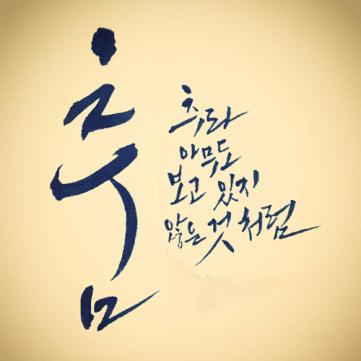 춤
춰라
아무도
보고 있지
않은 것처럼